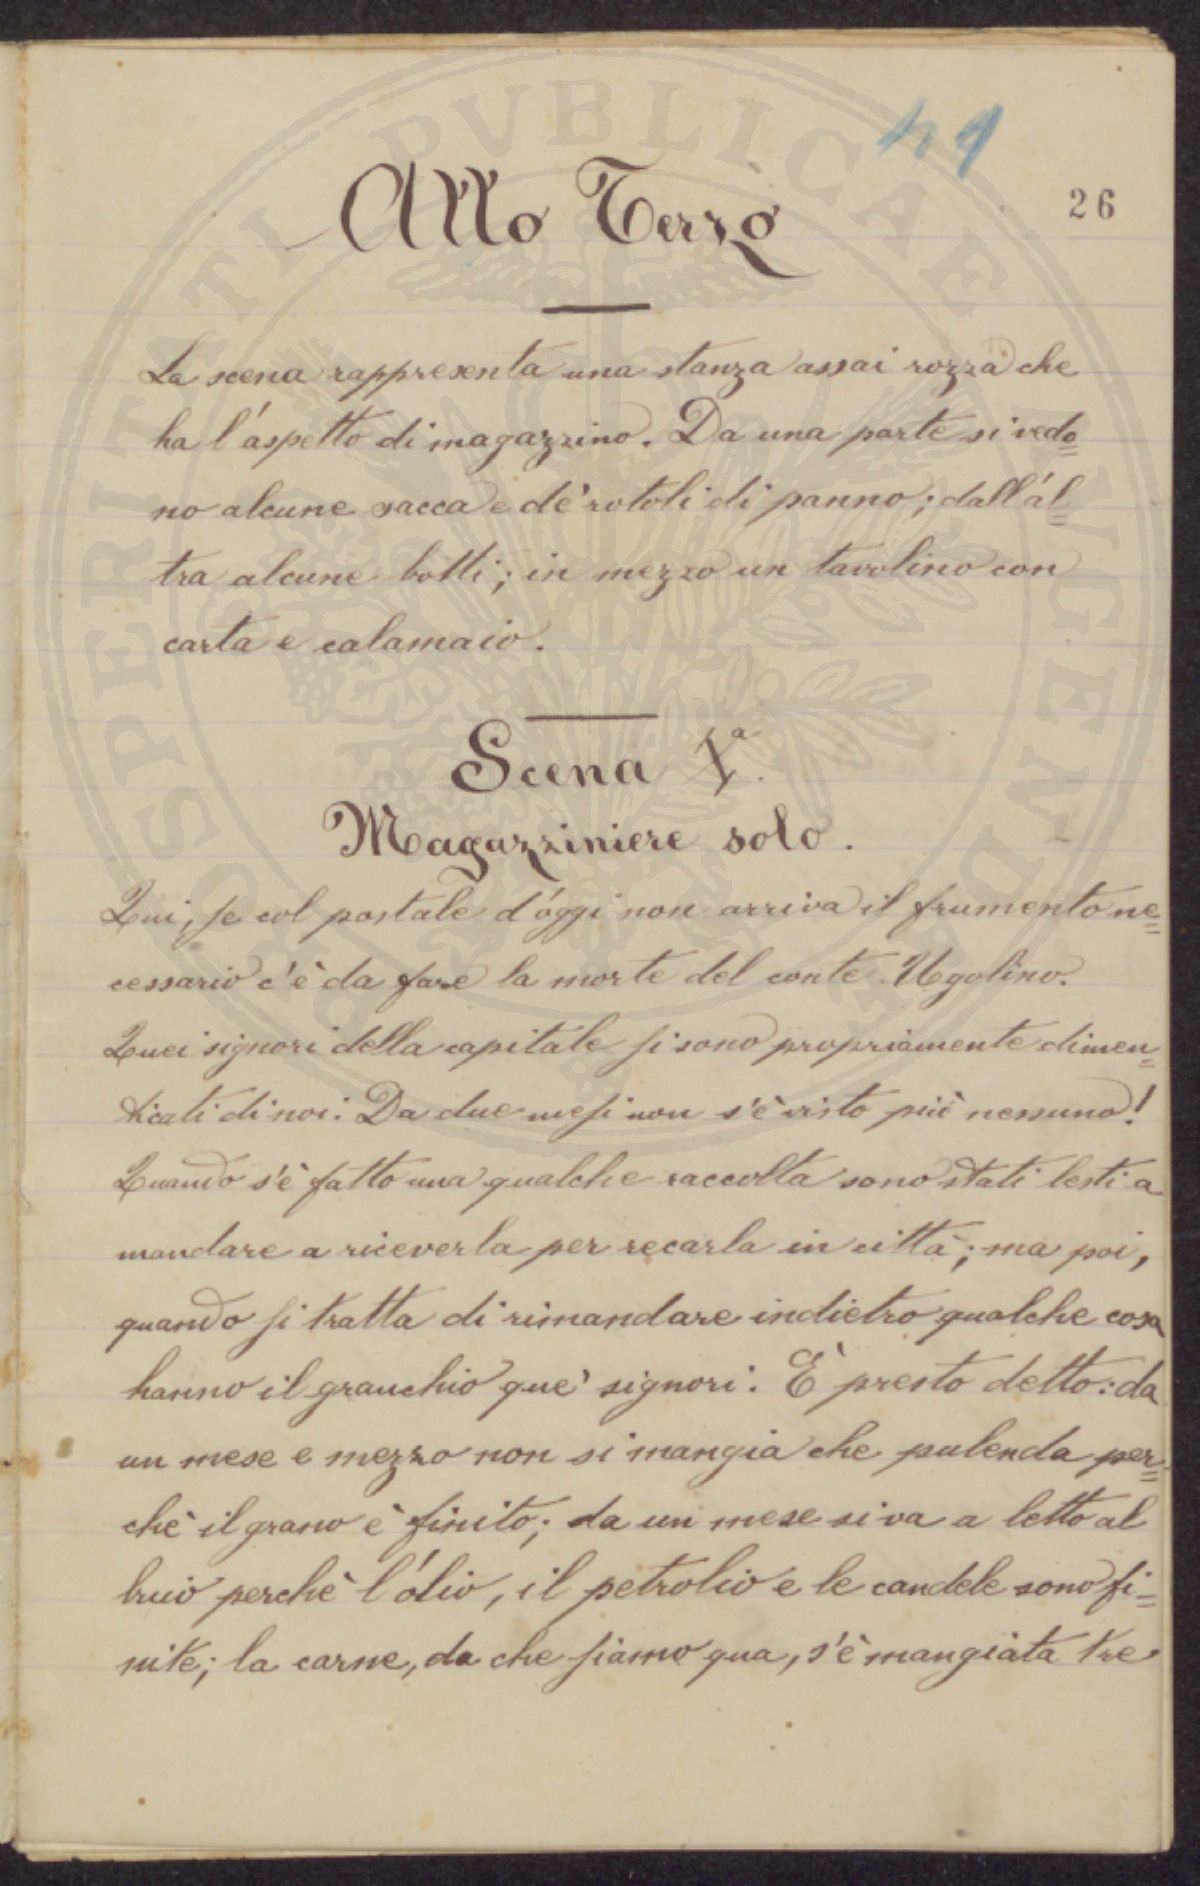 49
26
Atto Terzo
La scena rappresenta una stanza assai rozza che
ha l'aspetto di magazzino. Da una parte si vedo=
no alcune sacca e de' rotoli di panno; dall'al=
tra alcune botti; in mezzo un tavolino con
carta e calamaio.
Scena 1ª.
Magazziniere solo.
Qui, se col postale d'oggi non arriva il frumento ne=
cessario c'è da fare la morte del conte Ugolino.
Quei signori della capitale si sono propriamente dimen=
ticati di noi: Da due mesi non s'è visto più nessuno!
Quando s'è fatto una qualche raccolta sono stati lesti a
mandare a riceverla per recarla in città; ma poi,
quando si tratta di rimandare indietro qualche cosa
hanno il granchio que' signori. È presto detto: da
un mese e mezzo non si mangia che pulenda per=
chè il grano è finito; da un mese si va a letto al
buio perchè l'olio, il petrolio e le candele sono fi=
nite; la carne, da che siamo qua, s'è mangiata tre
PROSPERITATI PVBLICAE AVGENDAE